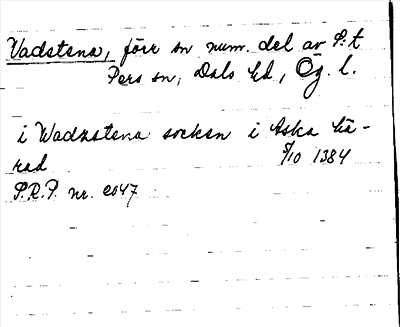 Vadstena, förr sn num. del av S:t
Pers sn, Dals hd, Ög. l.
i Wadzstena socken i Aska hä-
rad 5/10 1384
S.R.P. nr. 2047